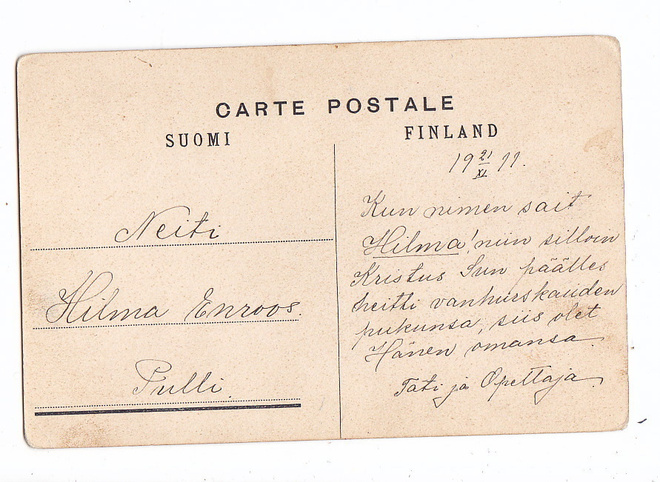 CARTE POSTALE
SUOMI FINLAND
19 21/XI 11.
Neiti
Hilma Enroos.
Pulli.
Kun nimen sait
Hilma! niin silloin
Kristus Sun päälles
heitti vanhurskauden
pukunsa, siis olet
Hänen omansa.
Täti ja Opettaja.